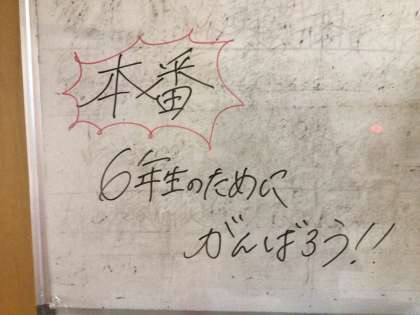 本番
6年生のために
がんばろう!!